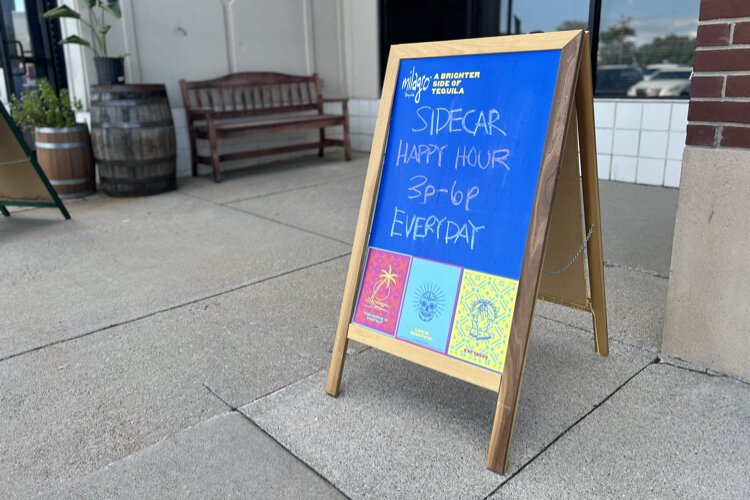 milagro
A BRIGHTER
SIDE OF
TEQUILA
SIDECAR
HAPPY HOUR
3p-6p
EVERYDAY